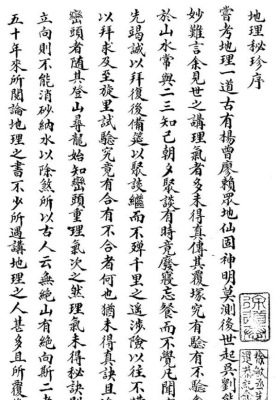 地理秘珍序
嘗考地理一道古有楊曾廖賴眾地仙固神明莫測後世起吳劉
妙難言余見世之講理氣者多未得真傳其覆塚究有驗有不驗
於山水常與二三知己朝夕聚談有時竟廢寢忘餐而不覺尾聞
先竭誠以拜後復備筵以聚談繼而不殫千里之遙涉險以往不
以拜求及至旋里試驗究竟有合有不合者何也猶未得真訣且
巒頭者隨其登山尋龍始知巒頭重理氣次之然理氣未得秘訣則
立向則不能消砂納水以除煞所以古人云無絕山有絕向斯二者
五十年來所閱論地理之書不少所遇講地理之人甚多且所覆